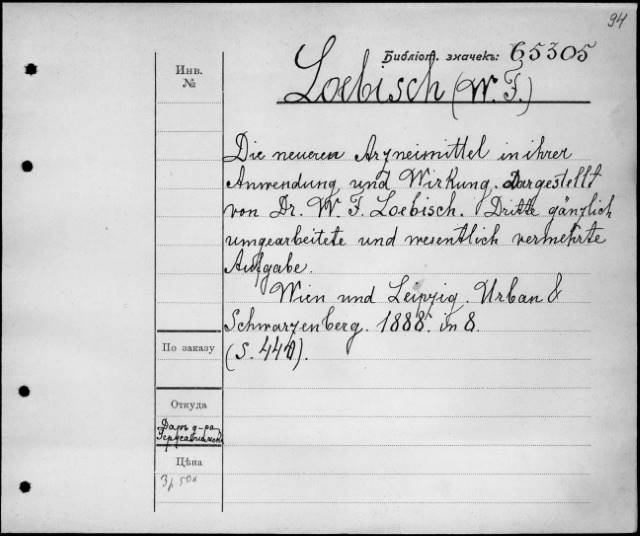 94
Библіот. значекъ: 65305
Инв.
№
Loebisch (W. F.)
Die neueren Arzneimittel in ihrer
Anwendung und Wirkung. Dargestellt
von Dr. W. F. Loebisch. Dritte gänzlich
umgearbeitete und wesentlich vermehrte
Aufgabe.
Wien und Leipzig. Urban &
Schwarzenberg. 1888. in 8.
По заказу
(S. 440).
Откуда
Даръ д-ра
Цѣна
3р 50к